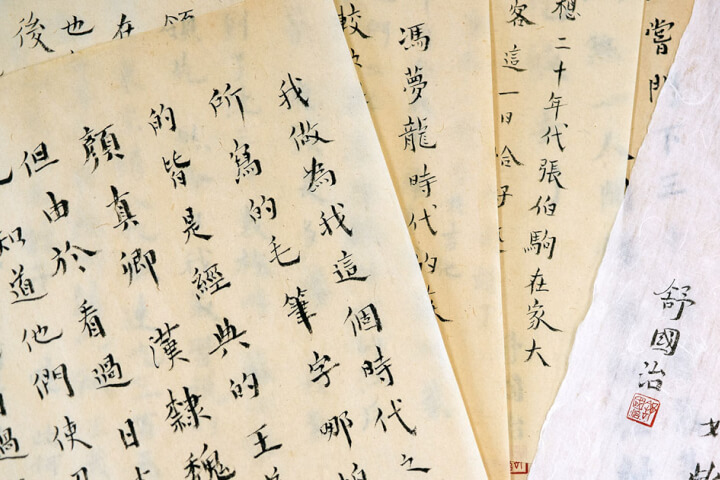 舒國治
嘗門
想二十年代張伯駒在家大
客這一日恰好
馮夢龍時代的
較
領
在
也
後
我做為我這個時代之
所寫的毛筆字哪怕
的皆是經典的王
顏真卿漢隸魏
但由於看過日
知道他們使
過